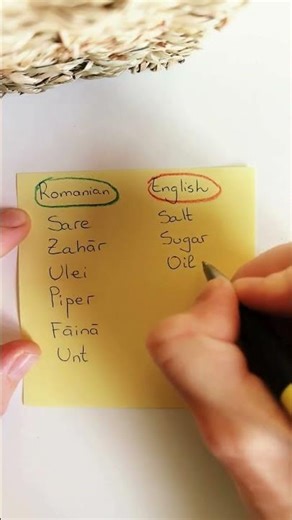 Romanian English
Sare Salt
Zahăr Sugar
Ulei Oil
Piper
Făină
Unt